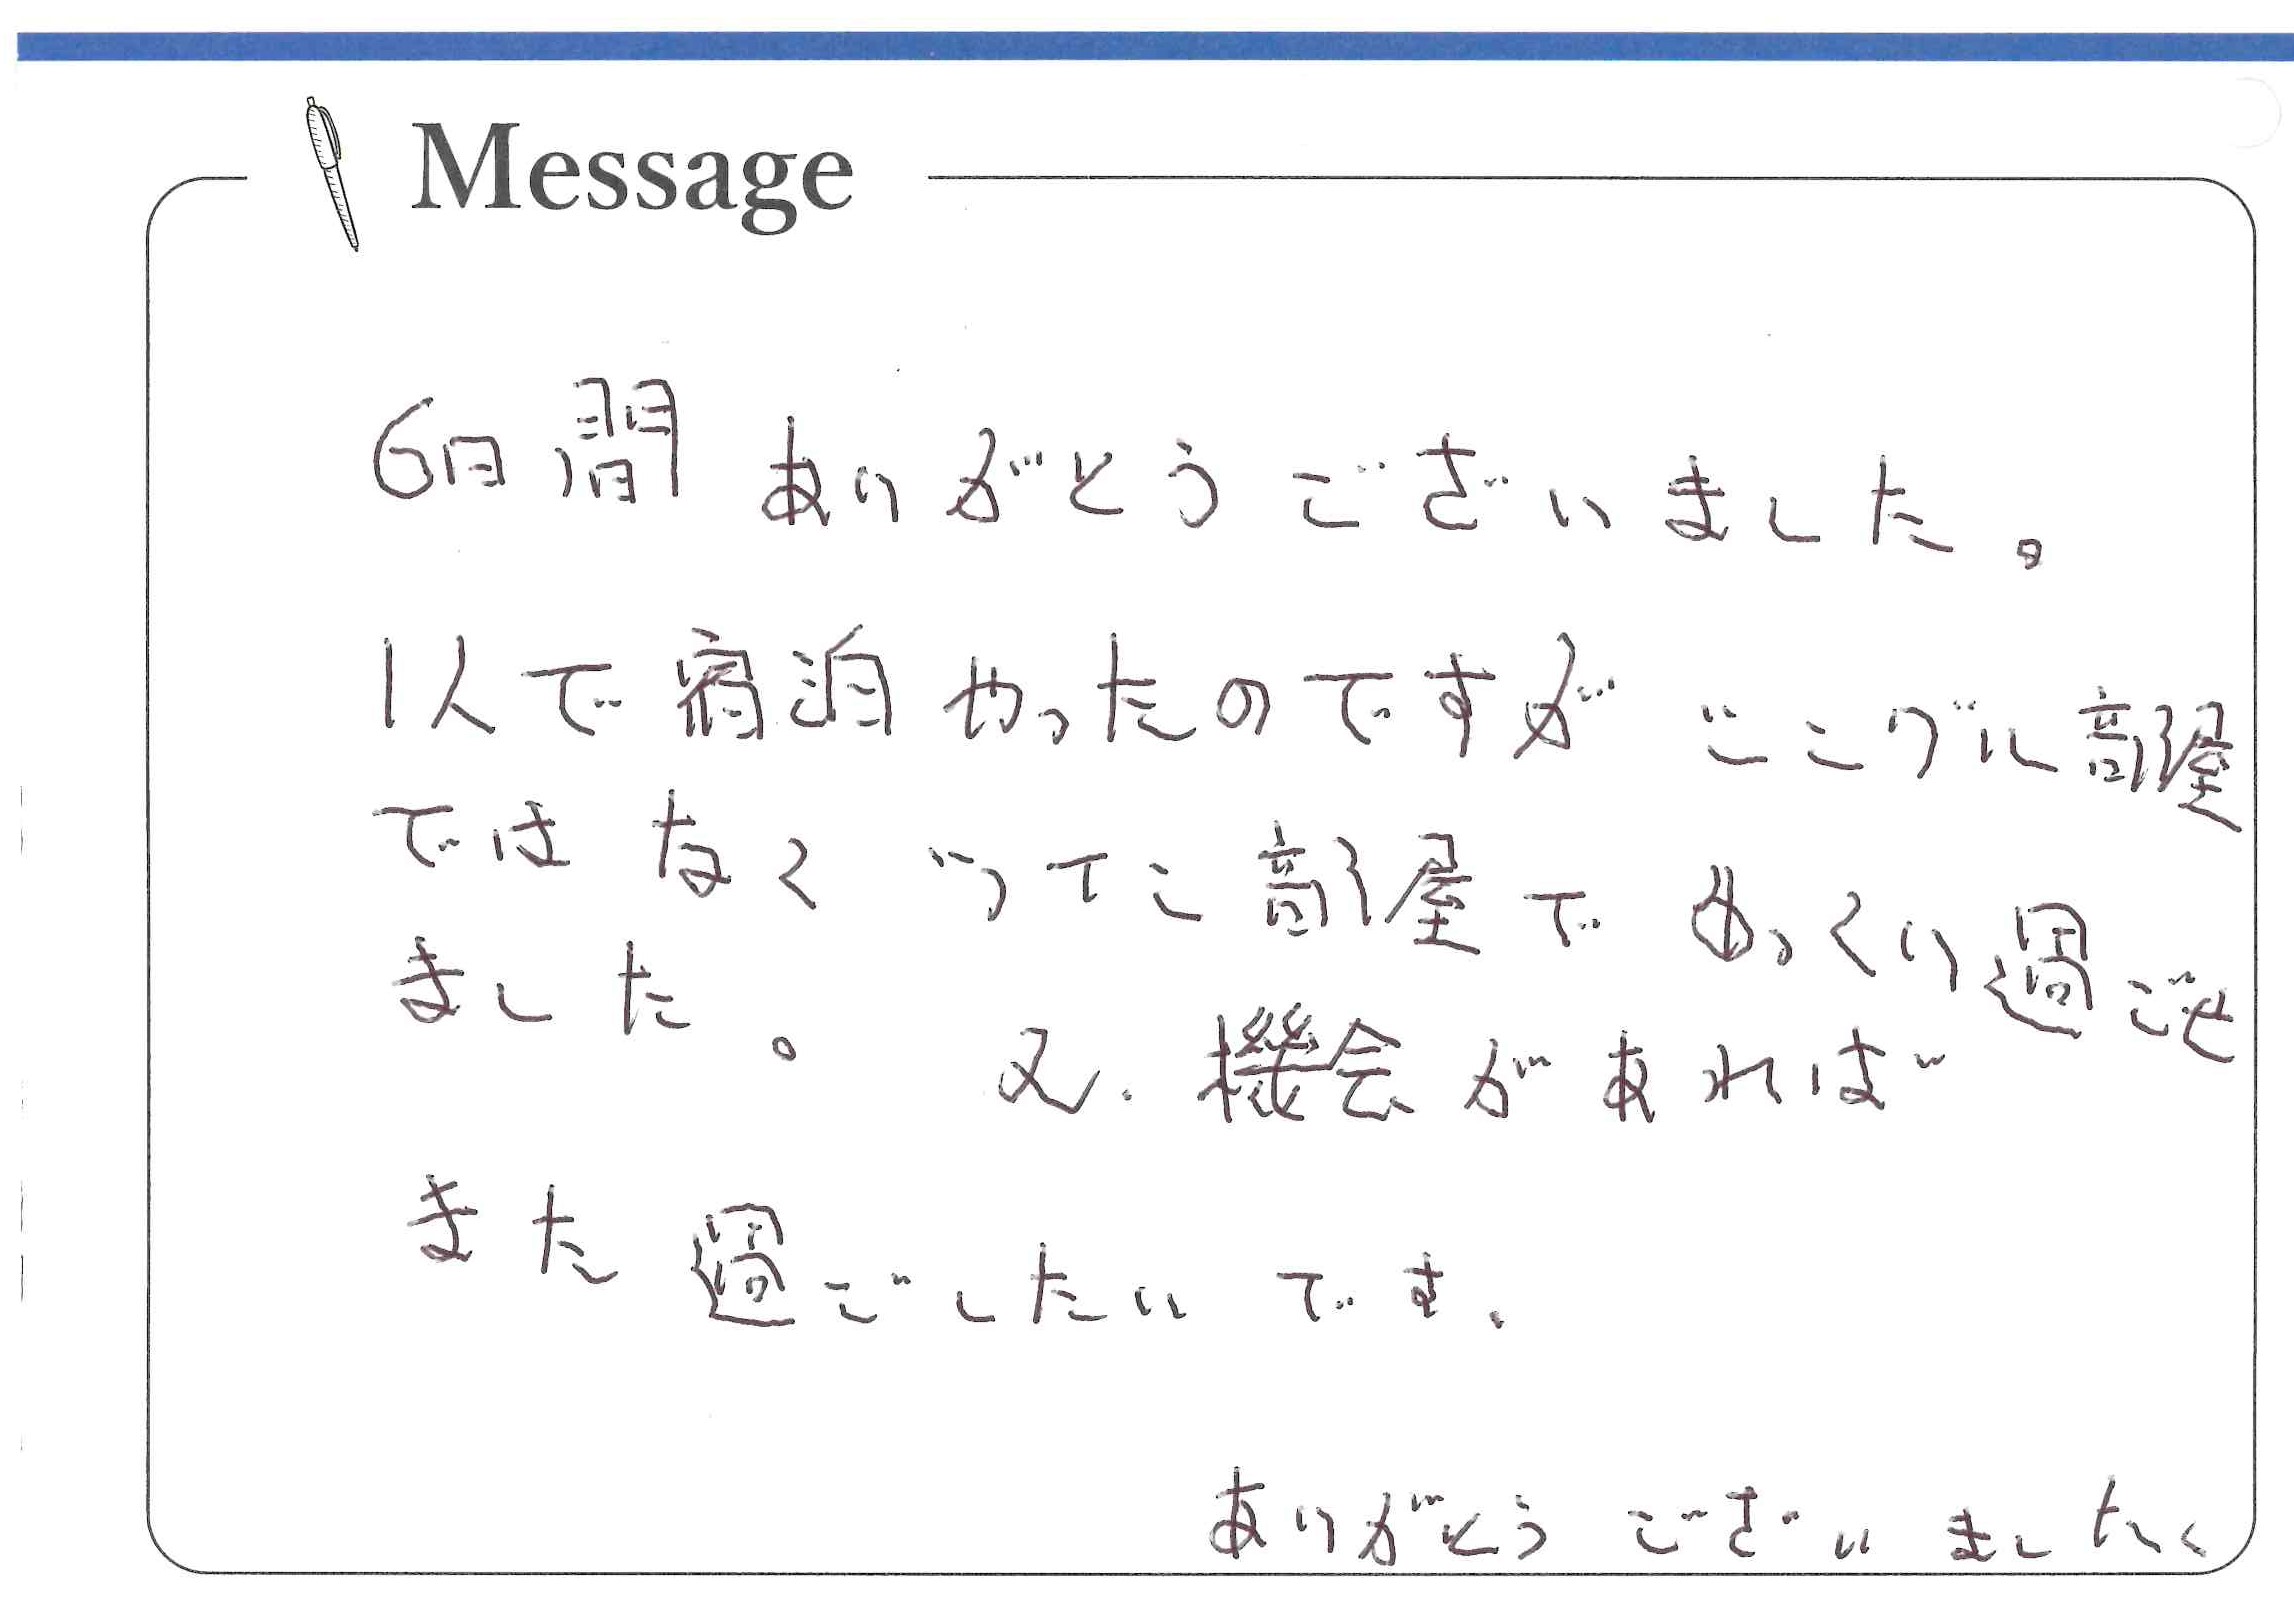 Message
6日間ありがとうございました。
1人で宿泊やったのですが シングル部屋
ではなく ツイン部屋で ゆっくり過ごせ
ました。 又、機会があれば
また 過ごしたい です、
ありがとう ございました